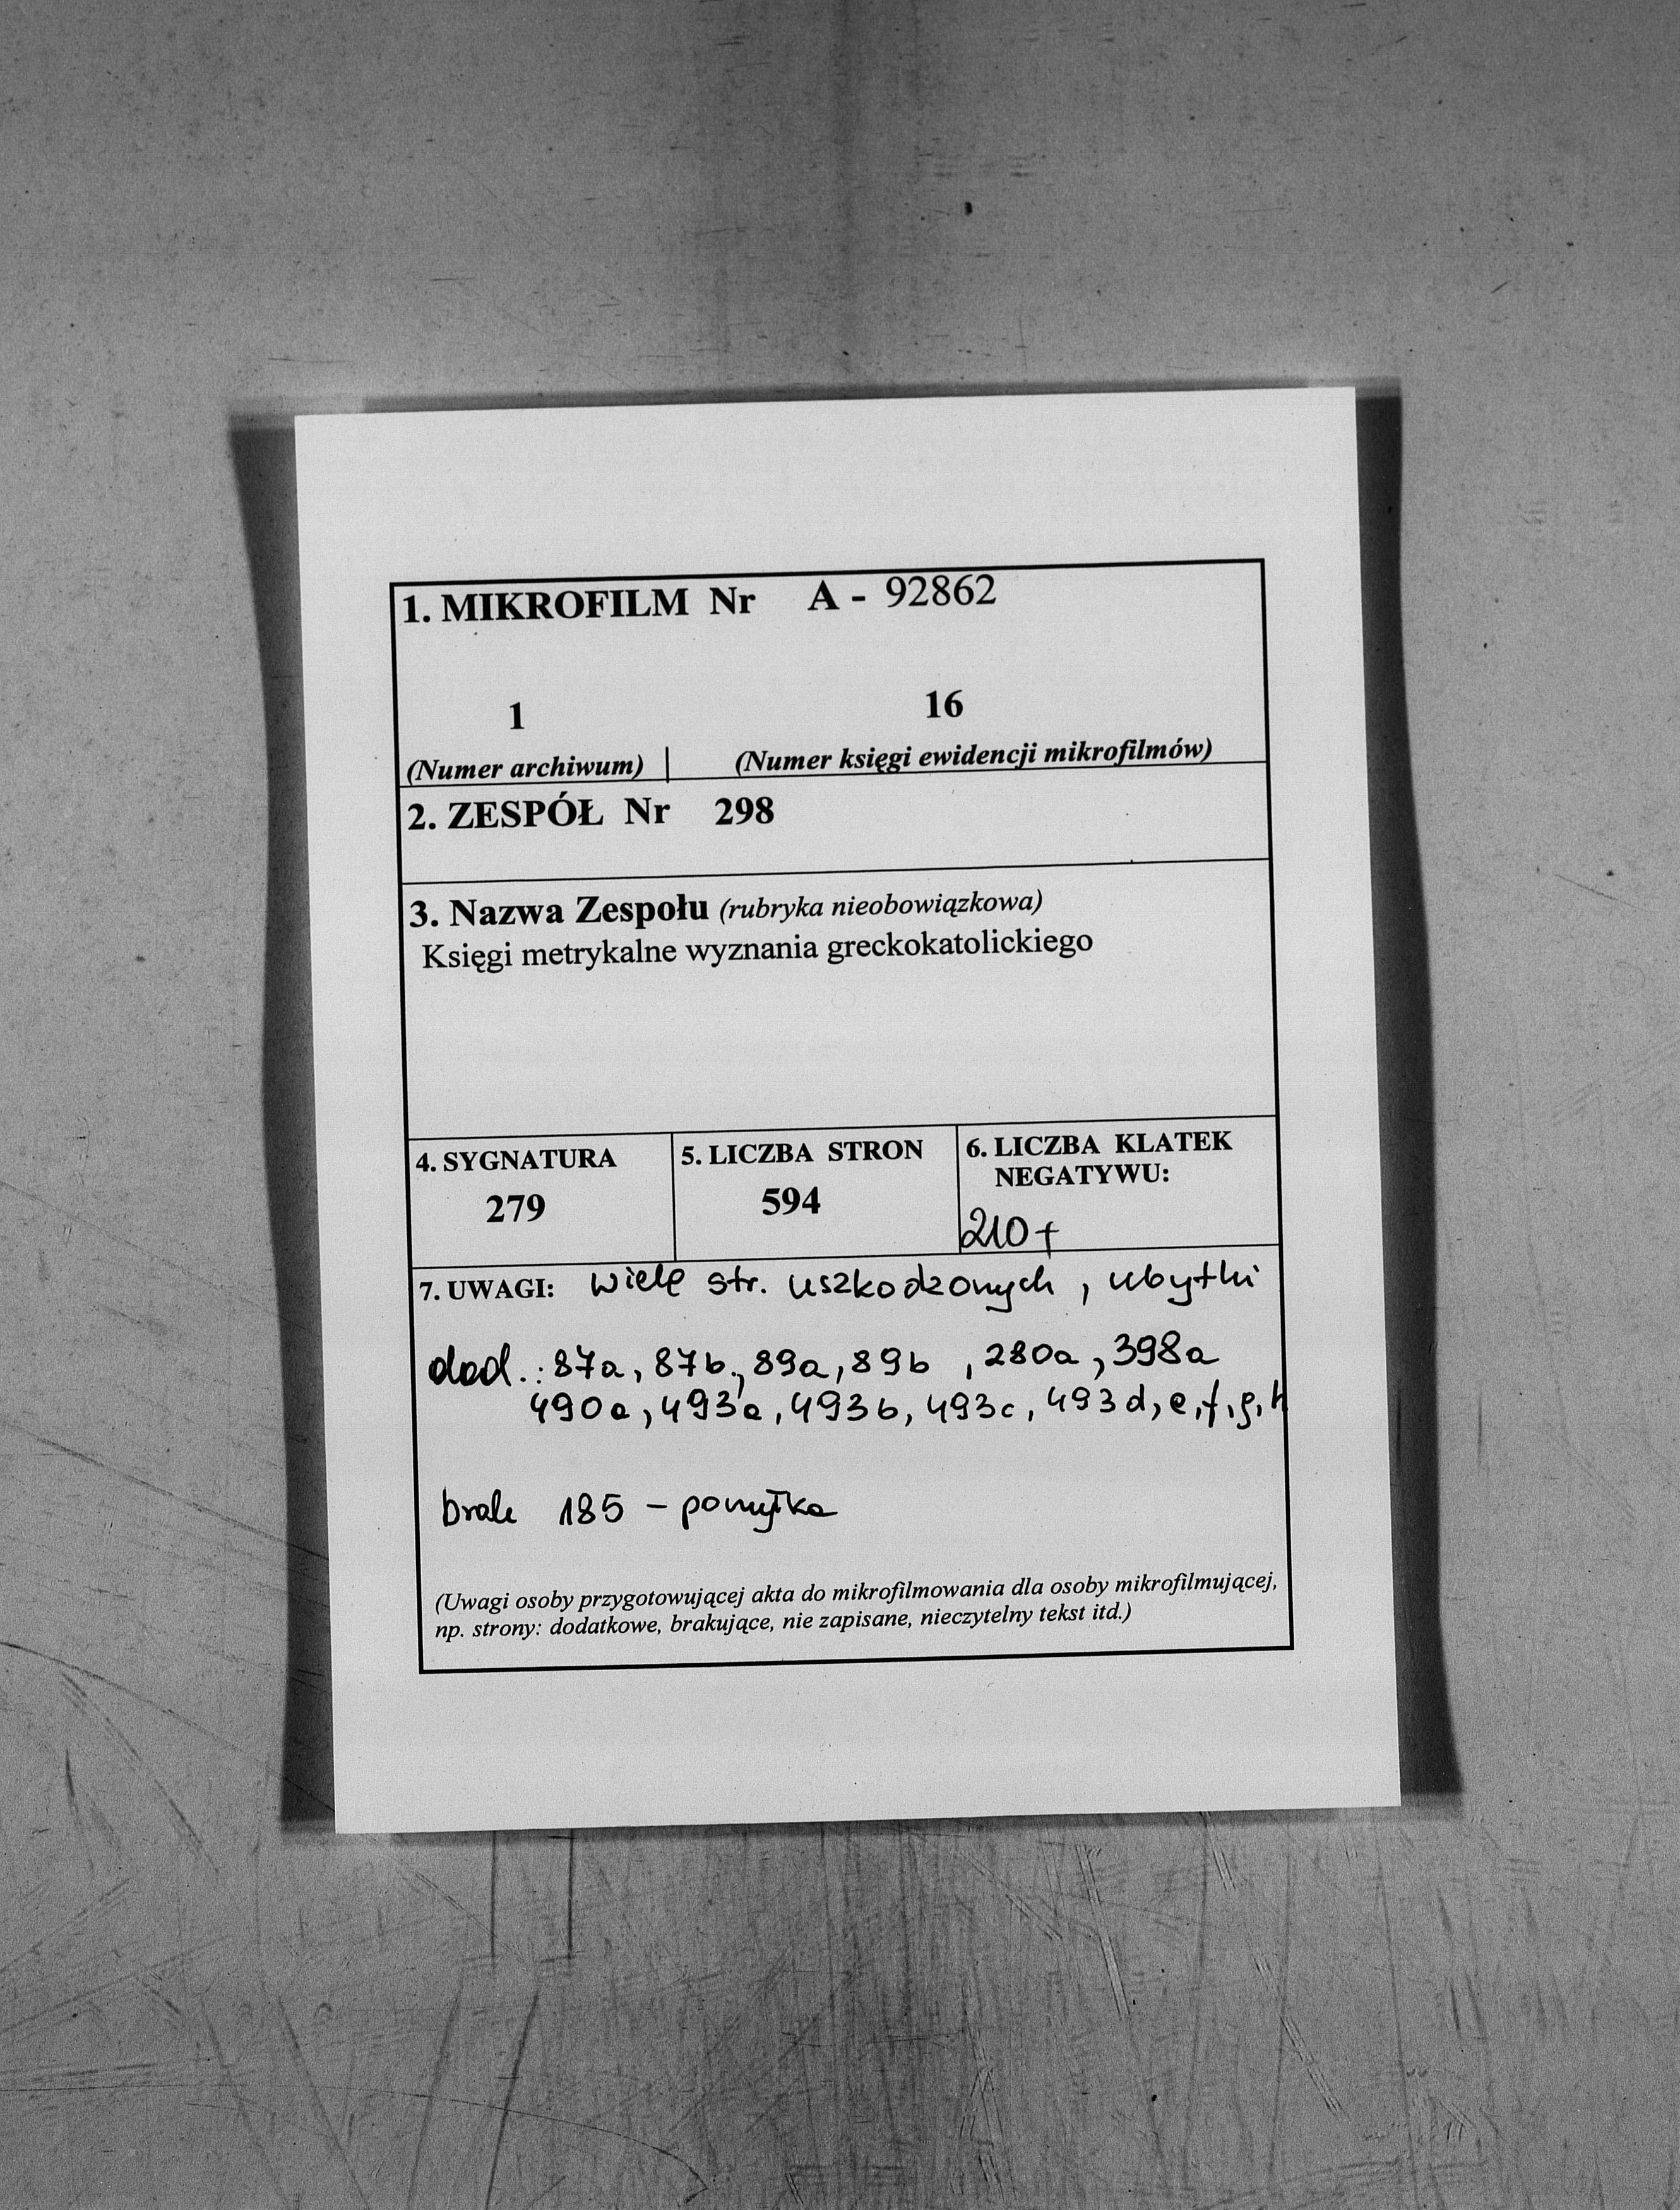 1. MIKROFILM Nr A - 92862
1 16
(Numer archiwum) | (Numer księgi ewidencji mikrofilmów)
2. ZESPÓŁ Nr 298
3. Nazwa Zespołu (rubryka nieobowiązkowa)
Księgi metrykalne wyznania greckokatolickiego
4. SYGNATURA
279
5. LICZBA STRON
594
6. LICZBA KLATEK
NEGATYWU:
210 +
7. UWAGI: wiele str. uszkodzonych, ubytki
dod.: 87a, 87b, 89a, 89b, 280a, 398a
490a, 493a, 493b, 493c, 493d, e, f, g, h
brak 185 - pomyłka
(Uwagi osoby przygotowującej akta do mikrofilmowania dla osoby mikrofilmującej,
np. strony: dodatkowe, brakujące, nie zapisane, nieczytelny tekst itd.)